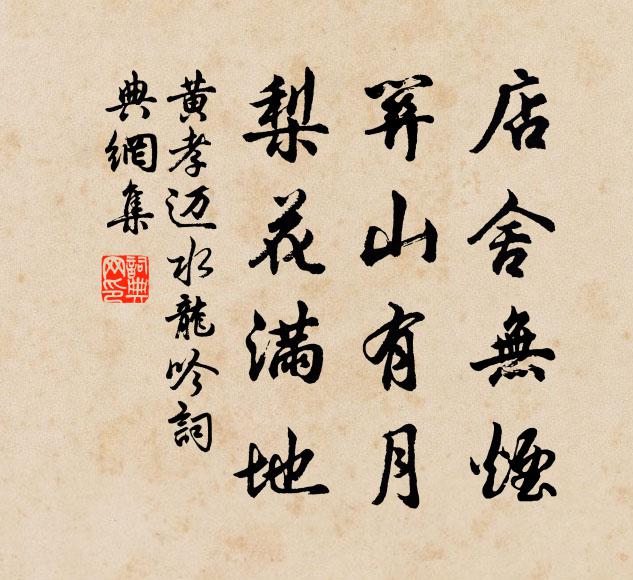 店舍無煙
關山有月
梨花滿地
黃孝迈水龍吟詞
典網集
詞典
网印